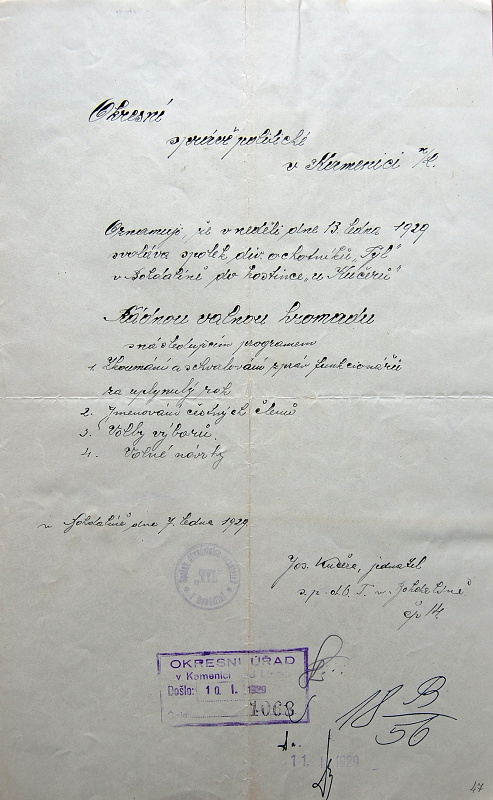 Okresní
správě politické
v Kamenici n/L.
Oznamuji, že v neděli dne 13. ledna 1929
svolává spolek div. ochotníků „Tyl“
v Bohdalíně do hostince „u Kučerů“
Řádnou valnou hromadu
s následujícím programem
1. Zkoumání a schvalování zpráv funkcionářů
za uplynulý rok
2. Jmenování čestných členů
3. Volby výborů.
4. Volné návrhy
v Bohdalíně dne 7. ledna 1929
„TYL“
Jos. Kučera, jednatel
s. p. d. O. T. v Bohdalíně
čp 14.
OKRESNÍ ÚŘAD
v Kamenici
Došlo: 10. I. 1929
Číslo: 1068
18 B/56
11. I. 1929
47